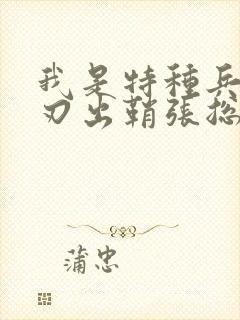 我是特種兵
刃出鞘張総
蒲忠